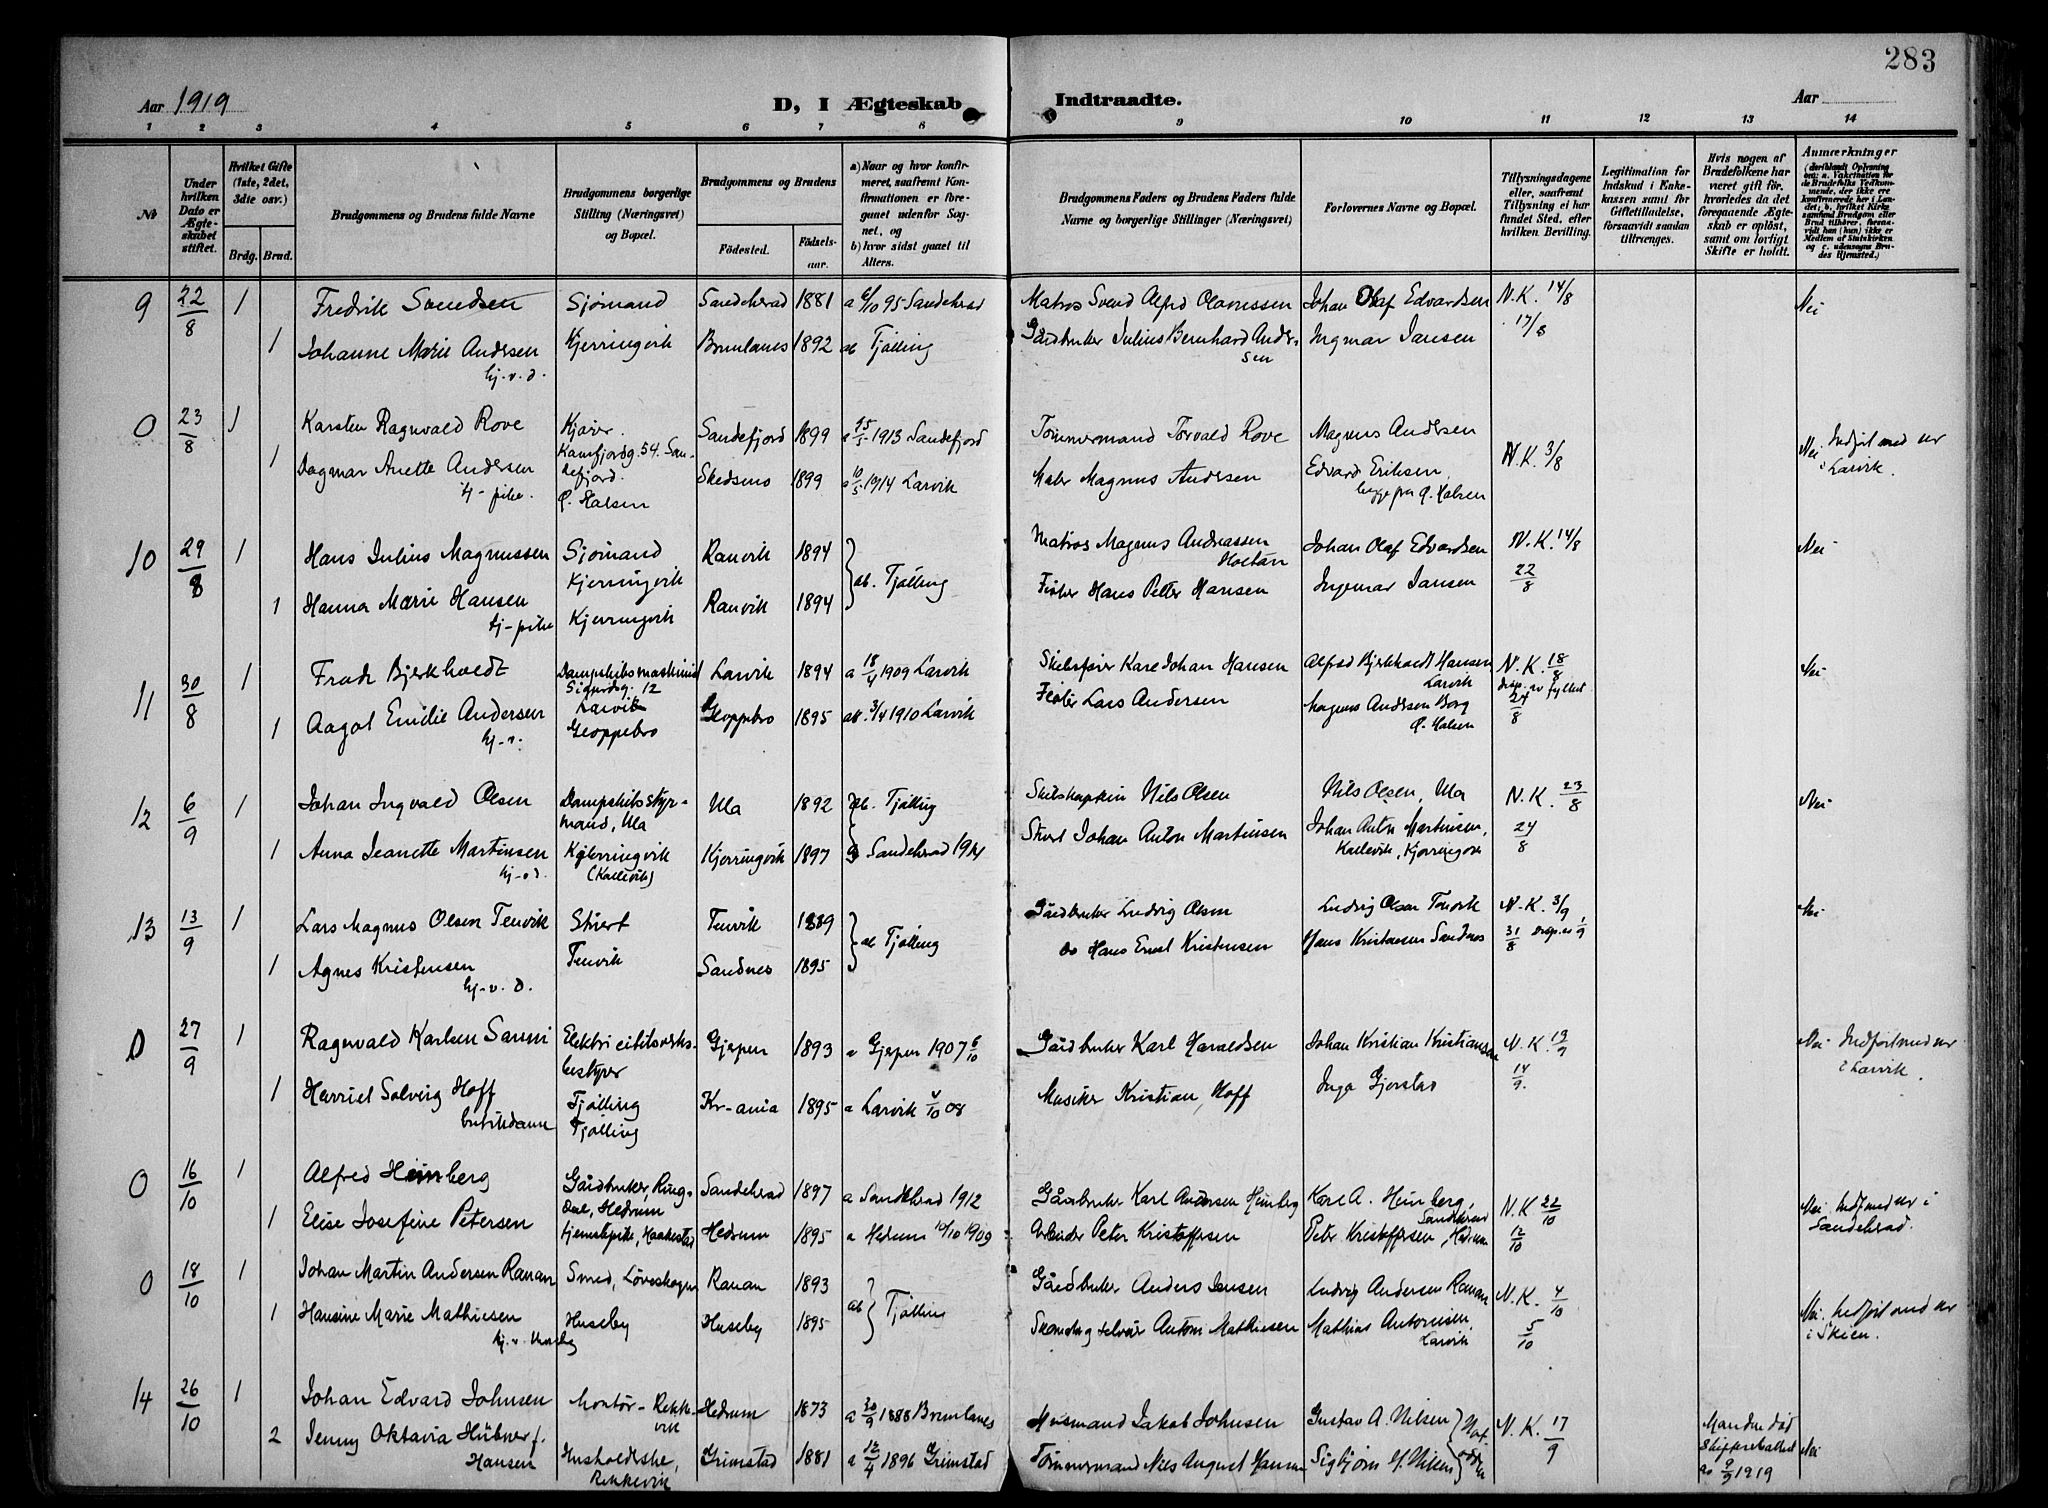 283
Aar 1919
D, I Ægteskab Indtraadte.
Aar
1 2 3 4 5 6 7 8 9 10 11 12 13 14
№
Under hvilken Dato er Ægteskabet stiftet.
Hvilket Gifte (1ste, 2det, 3die osv.)
Brdg. Brud.
Brudgommens og Brudens fulde Navne
Brudgommens borgerlige Stilling (Næringsvei) og Bopæl.
Brudgommens og Brudens
Fødested. Fødsels-aar.
a) Naar og hvor konfirmeret, saafremt Konfirmationen er foregaaet udenfor Sognet, og
b) hvor sidst gaaet til Alters.
Brudgommens Faders og Brudens Faders fulde Navne og borgerlige Stillinger (Næringsvei)
Forlovernes Navne og Bopæl.
Tillysningsdagene eller, saafremt Tillysning ei har fundet Sted, efter hvilken Bevilling.
Legitimation for Indskud i Enkekassen samt for Giftetilladelse, forsaavidt saadan tiltrænges.
Hvis nogen af Brudefolkene har været gift før, hvorledes da det foregaaende Ægteskab er opløst, samt om lovligt Skifte er holdt.
Anmærkninger
9 22/8 1 Fredrik Svendsen Sjømand Sandeherad 1881 a 6/10 95 Sandeherad Matros Svend Alfred Olavessen Johan Olaf Edvardsen N.K. 14/8 Nei
1 Johanne Marie Andersen Kjerringvik Brunlanes 1892 ab Tjølling Gårdbruker Julius Bernhard Andersen Ingmar Jansen 17/8
hj.v.d.
0 23/8 1 Karsten Ragnvald Rove Kjører Sandefjord 1899 1913 Sandefjord Tømmermand Torvald Rove Magnus Andersen N.K. 3/8 Nei Indført med nr
1 Dagmar Anette Andersen Kamfjordg. 54. Sandefjord. Skedsmo 1899 a 10/5 1914 Larvik Maler Magnus Andersen Edvard Eriksen i Larvik.
tj-pike. Ø. Halsen begge fra Ø. Halsen
10 29/8 1 Hans Julius Magnussen Sjømand Ranvik 1894 ab. Tjølling Matros Magnus Andreassen Holtan Johan Olaf Edvardsen N.K. 14/8 Nei
Kjerringvik
1 Hanna Marie Hansen Kjerringvik Ranvik 1894 Fisker Hans Petter Hansen Ingemar Jansen 22/8
tj-pike
11 30/8 1 Frode Bjerkholdt Dampskibsmaskinist Larvik 1894 a 18/4 1909 Larvik Skibsfører Karl Johan Hansen Alfred Bjerkholdt Hansen, Larvik N.K. 18/8 Nei
Sigurdsg. 12 Larvik
1 Aagot Emilie Andersen Gloppebro Gloppebro 1895 ab. 3/4 1910 Larvik Fisker Lars Andersen Magnus Andersen Borg Ø. Halsen 24/8
12 6/9 1 Johan Ingvald Olsen Dampskibsstyrmand, Ula Ula 1892 ab. Tjølling Skibskaptein Nils Olsen Nils Olsen, Ula N.K. 23/8 Nei
1 Anna Jeanette Martinsen Kjerringvik Kjerringvik 1897 Sandeherad 1914 Stuert Johan Anton Martinsen Johan Anton Martinsen, 24/8
hj-v.d. (Kallevik) Kallevik, Kjerringvik
13 13/9 1 Lars Magnus Olsen Tenvik Stuert Tenvik 1889 ab Tjølling Gårdbruker Ludvig Olsen Ludvig Olsen Tenvik N.K. 3/9 Nei
1 Agnes Kristensen Tenvik Sandnes 1895 do Hans Emil Kristensen Hans Kristensen Sandnes 31/8
hj-v.d.
0 27/9 1 Ragnvald Karlsen Sanni Elektricitetsverksbestyrer Gjerpen 1893 a Gjerpen 1907 6/10 Gårdbruker Karl Haraldsen Johan Kristian Kristiansen N.K. 13/9 Nei Indført med nr
1 Harriet Solveig Hoff Tjølling Kr-ania 1895 a Larvik 4/10 08 Musiker Kristian Hoff Inga Gjerstad 14/9. i Larvik.
butikdame Tjølling
0 16/10 1 Alfred Heimberg Gårdbruker, Ringdal, Hedrum Sandeherad 1897 a Sandeherad 1912 Gårdbruker Karl Andersen Heimberg Karl A. Heimberg, Sandeherad N.K 22/10 Nei Indf med nr i Sandeherad.
1 Elise Josefine Petersen hjemstpike, Haakestad Hedrum 1895 a Hedrum 10/10 1909 Arbeider Peter Kristoffersen Peter Kristoffersen, Hedrum 12/10
0 18/10 1 Johan Martin Andersen Ranan Smed, Løveskogen Ranan 1893 ab Tjølling Gårdbruker Anders Jensen Ludvig Andersen Ranan N.K. 4/10 Nei Indført med nr i Skien.
1 Hansine Marie Mathiesen Huseby Huseby 1895 Anton Mathiesen Mathias Antonisen, Larvik 5/10
hj.v. Huseby
14 26/10 1 Johan Edvard Johnsen Montør - Rekkevik Hedrum 1873 a 30/9 1888 Brunlanes Husmand Jakob Johnsen Gustav A. Nilsen N.K. 17/9 Manden død
2 Jenny Oktavia Hübner f. Hansen Husholderske, Rekkevik Grimstad 1881 a 12/4 1896 Grimstad Tømmermand Nils August Hansen Sigbjørn H. Nilsen Skifteattest 1919 Nei